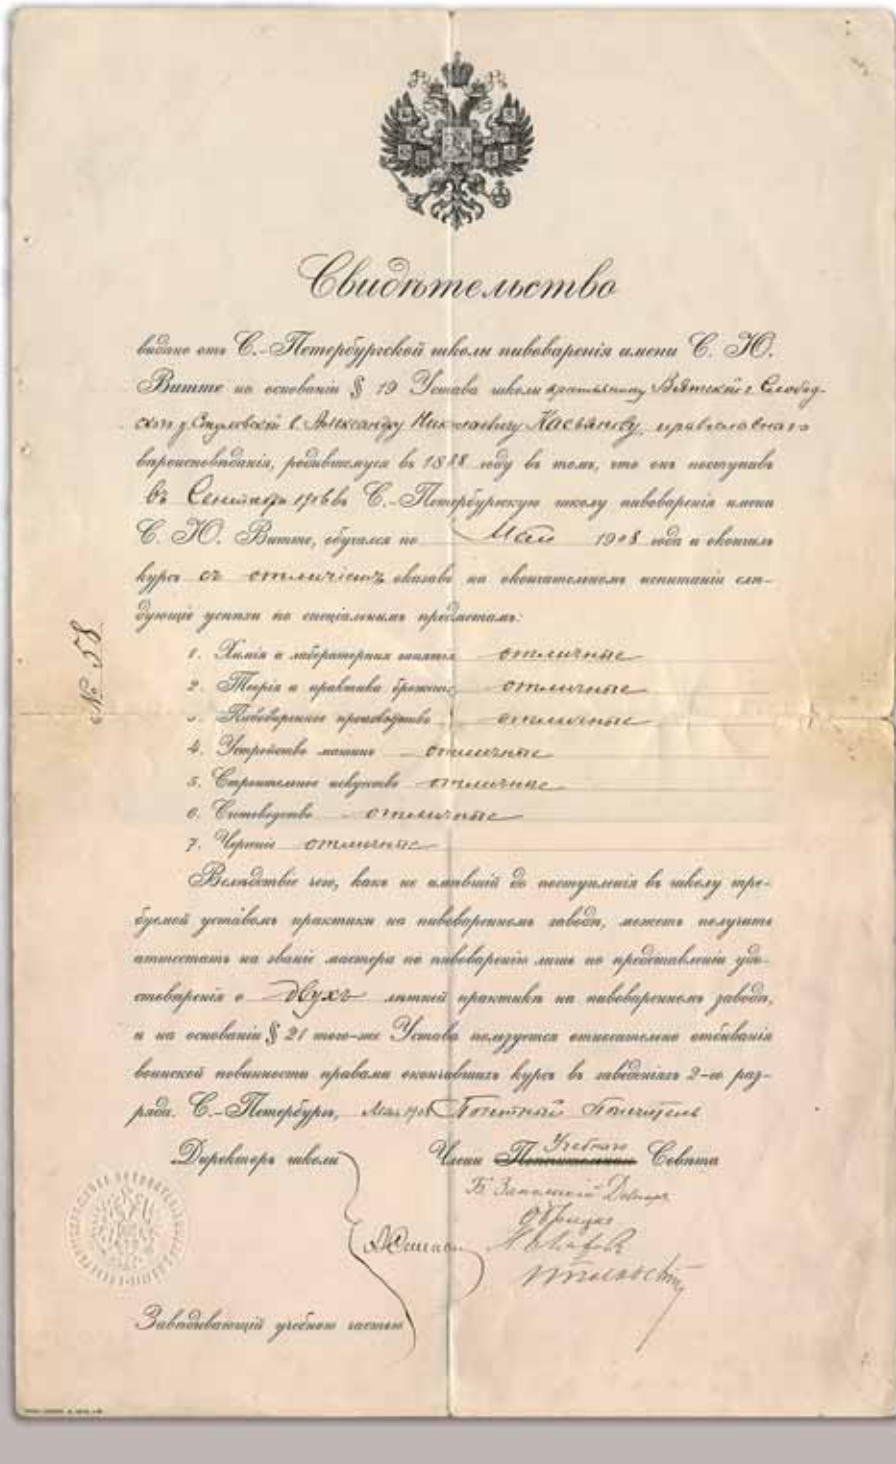 Свидѣтельство
выдано отъ С.-Петербургской школы пивоваренія имени С. Ю.
Витте на основаніи § 19 Устава школы крестьянину Вятской г. Слобод-
ского у. Александру Николаевичу Касьянову, православнаго
вѣроисповѣданія, родившемуся въ 1888 году въ томъ, что онъ поступивъ
въ Сентябрѣ 1906 въ С.-Петербургскую школу пивоваренія имени
С. Ю. Витте, обучался по Май 1908 года и окончилъ
курсъ съ отличіемъ оказавъ на окончательномъ испытаніи слѣ-
дующіе успѣхи по спеціальнымъ предметамъ:
№ 58
1. Химія и лабораторныя занятія отличные
2. Теорія и практика броженія отличные
3. Пивоваренное производство отличные
4. Устройство машинъ отличные
5. Строительное искусство отличные
6. Счетоводство отличные
7. Черченіе отличные
Вслѣдствіе чего, какъ не имѣвшій до поступленія въ школу тре-
буемой уставомъ практики на пивоваренномъ заводѣ, можетъ получить
аттестатъ на званіе мастера по пивоваренію лишь по представленіи удо-
стовѣренія о двухъ лѣтней практикѣ на пивоваренномъ заводѣ,
и на основаніи § 21 того-же Устава пользуется относительно отбыванія
воинской повинности правами окончившихъ курсъ въ заведеніяхъ 2-го раз-
ряда. С.-Петербургъ, Мая 1908 Почетный Попечитель
Директоръ школы Члены Учебнаго Совѣта
Завѣдывающій учебною частью